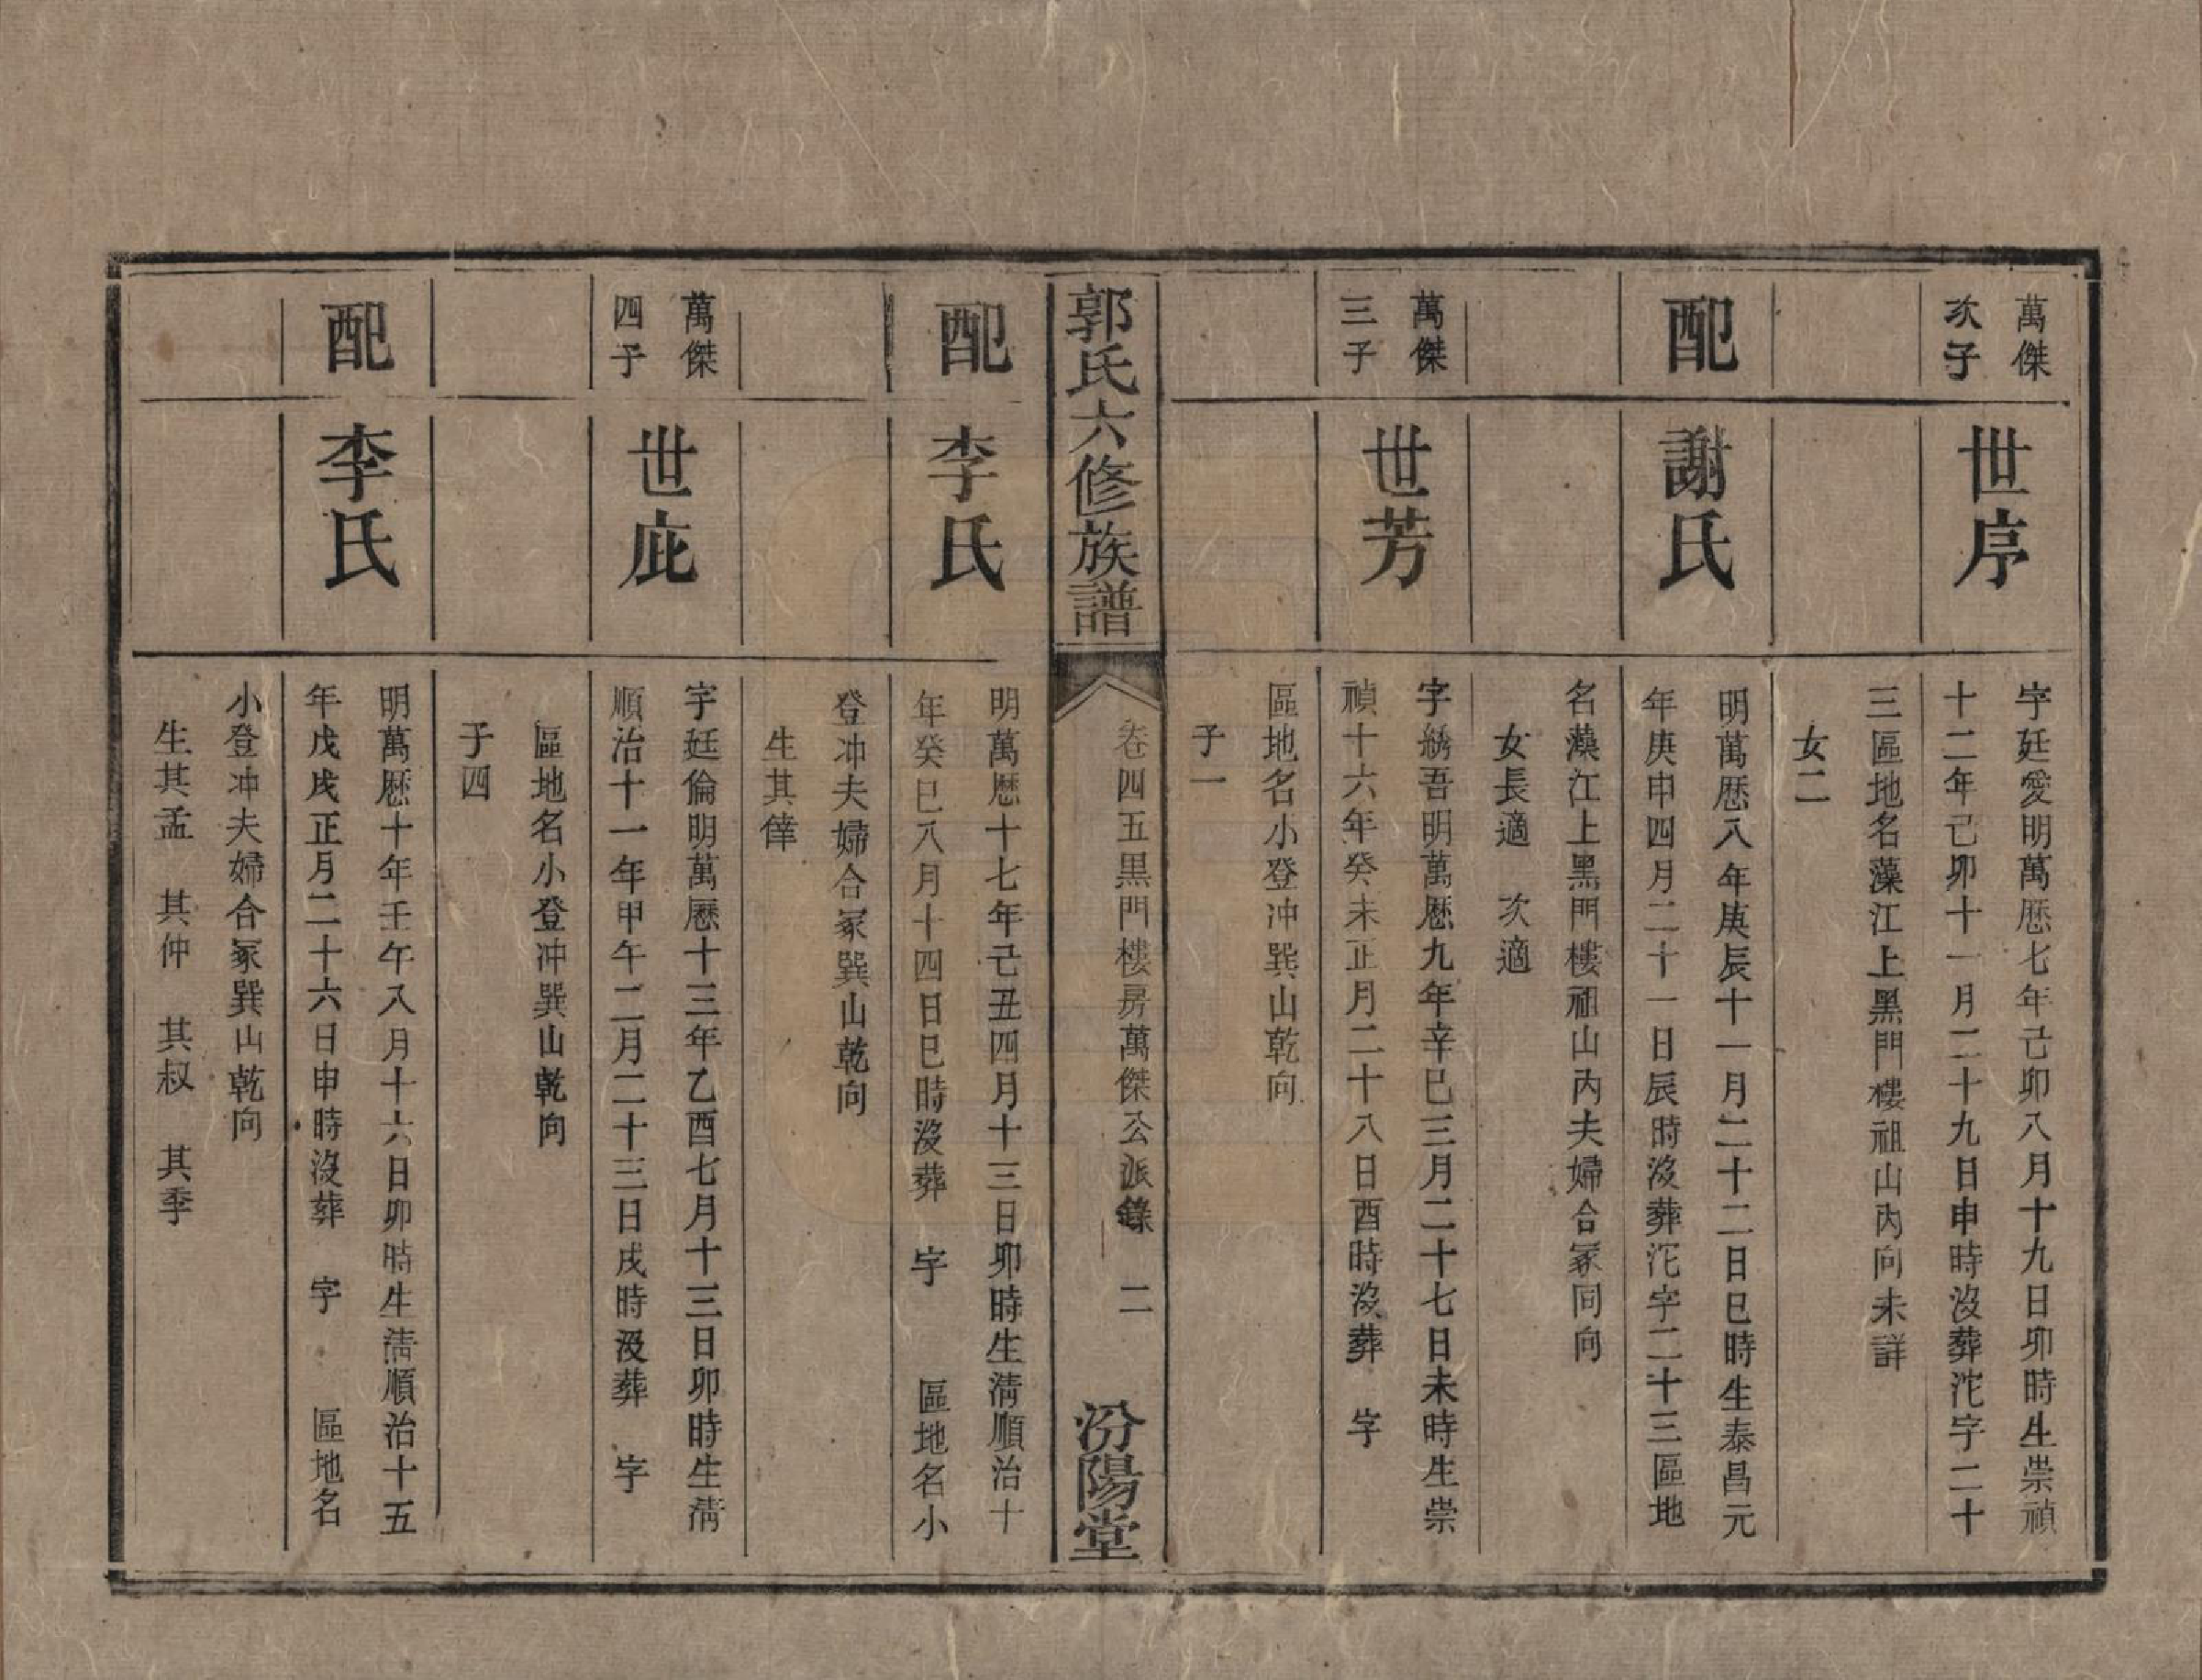 萬傑
次子
世序
字廷愛明萬厯七年己卯八月十九日卯時生崇禎
十二年己卯十一月二十九日申時沒葬沱字二十
三區地名藻江上黑門樓祖山內向未詳
女二
配
謝氏
明萬厯八年庚辰十一月二十二日巳時生泰昌元
年庚申四月二十一日辰時沒葬沱字二十三區地
名藻江上黑門樓祖山丙夫婦合冢同向
女長適　次適
萬傑
三子
世芳
字綉吾明萬厯九年辛巳三月二十七日未時生崇
禎十六年癸未正月二十八日酉時沒葬　字
區地名小登冲巽山乾向
子一
郭氏六修族譜
卷四五黑門樓房萬傑公派錄　二
汾陽堂
配
李氏
明萬厯十七年己丑四月十三日卯時生清順治十
年癸巳八月十四日巳時沒葬　字　　區地名小
登冲夫婦合冢巽山乾向
生其倖
萬傑
四子
世庇
字廷倫明萬厯十三年乙酉七月十三日卯時生清
順治十一年甲午二月二十三日戌時沒葬　字
區地名小登冲巽山乾向
子四
配
李氏
明萬厯十年壬午八月十六日卯時生清順治十五
年戊戌正月二十六日申時沒葬　字　　區地名
小登冲夫婦合冢巽山乾向
生其孟　其仲　其叔　其季